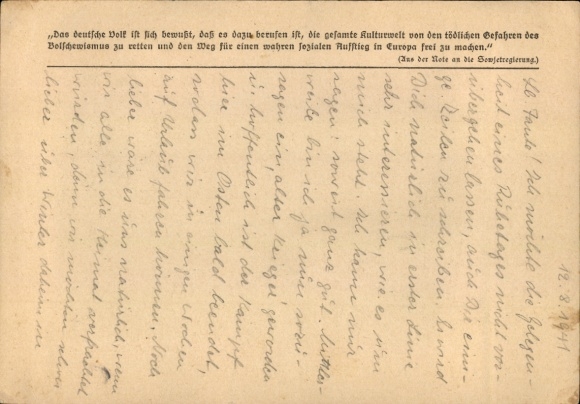 „Das deutsche Volk ist sich bewußt, daß es dazu berufen ist, die gesamte Kulturwelt von den tödlichen Gefahren des
Bolschewismus zu retten und den Weg für einen wahren sozialen Aufstieg in Europa frei zu machen.“
(Aus der Note an die Sowjetregierung.)
12.8.1941
Lb Tante! Ich möchte die Gelegen-
heit eines Ruhetages nicht vor-
übergehen lassen, auch Dir eini-
ge Zeilen zu schreiben. Es wird
Dich natürlich in erster Linie
sehr interessieren, wie es um
mich steht. Ich kann nur
sagen: soweit ganz gut. Mittler-
weile bin ich ja nun sozu-
sagen ein „alter Krieger“ geworden
u. hoffentlich ist der Kampf
hier im Osten bald beendet,
sodass wir in einigen Wochen
auf Urlaub fahren können. Noch
lieber wäre es uns natürlich, wenn
wir alle in die Heimat verfrachtet
würden, denn wir möchten schon
lieber über Winter daheim in